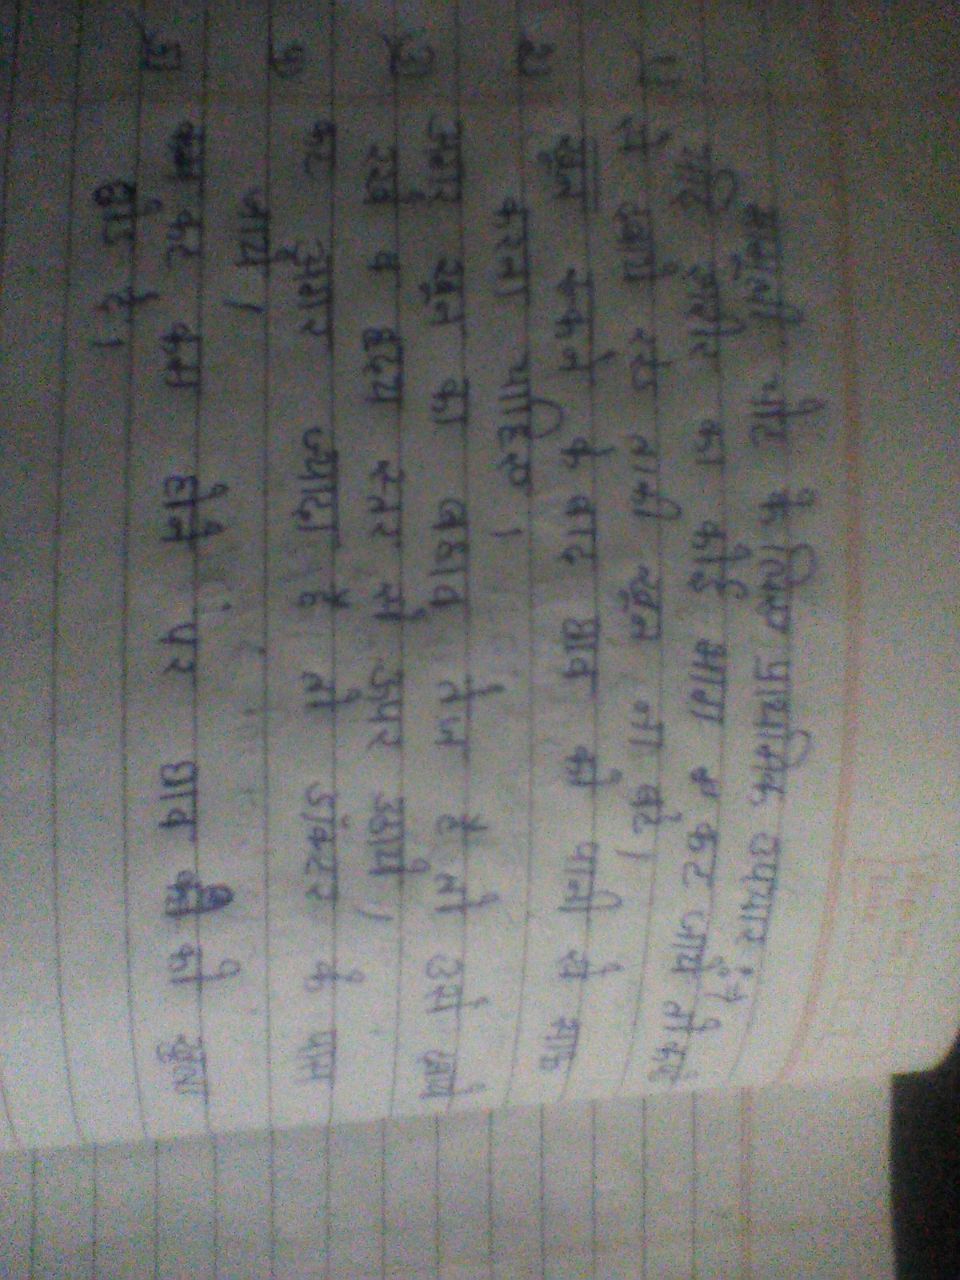 मामूली चोट के लिए प्राथमिक उपचार :→
1) यदि शरीर का कोई भाग कट जाये तो कटे
से अंगो रहे ताकी खून ना बहे।
2) खून रूकने के बाद घाव को पानी से साफ
करना चाहिए।
3) अगर खून का बहाव तेज है तो उसे
रखे व हृदय स्तर से ऊपर उठाये।
4) कट अगर ज्यादा है तो डॉक्टर के पास
जाये।
5) कट कम होने पर घाव को खुला
छोड़ दे।